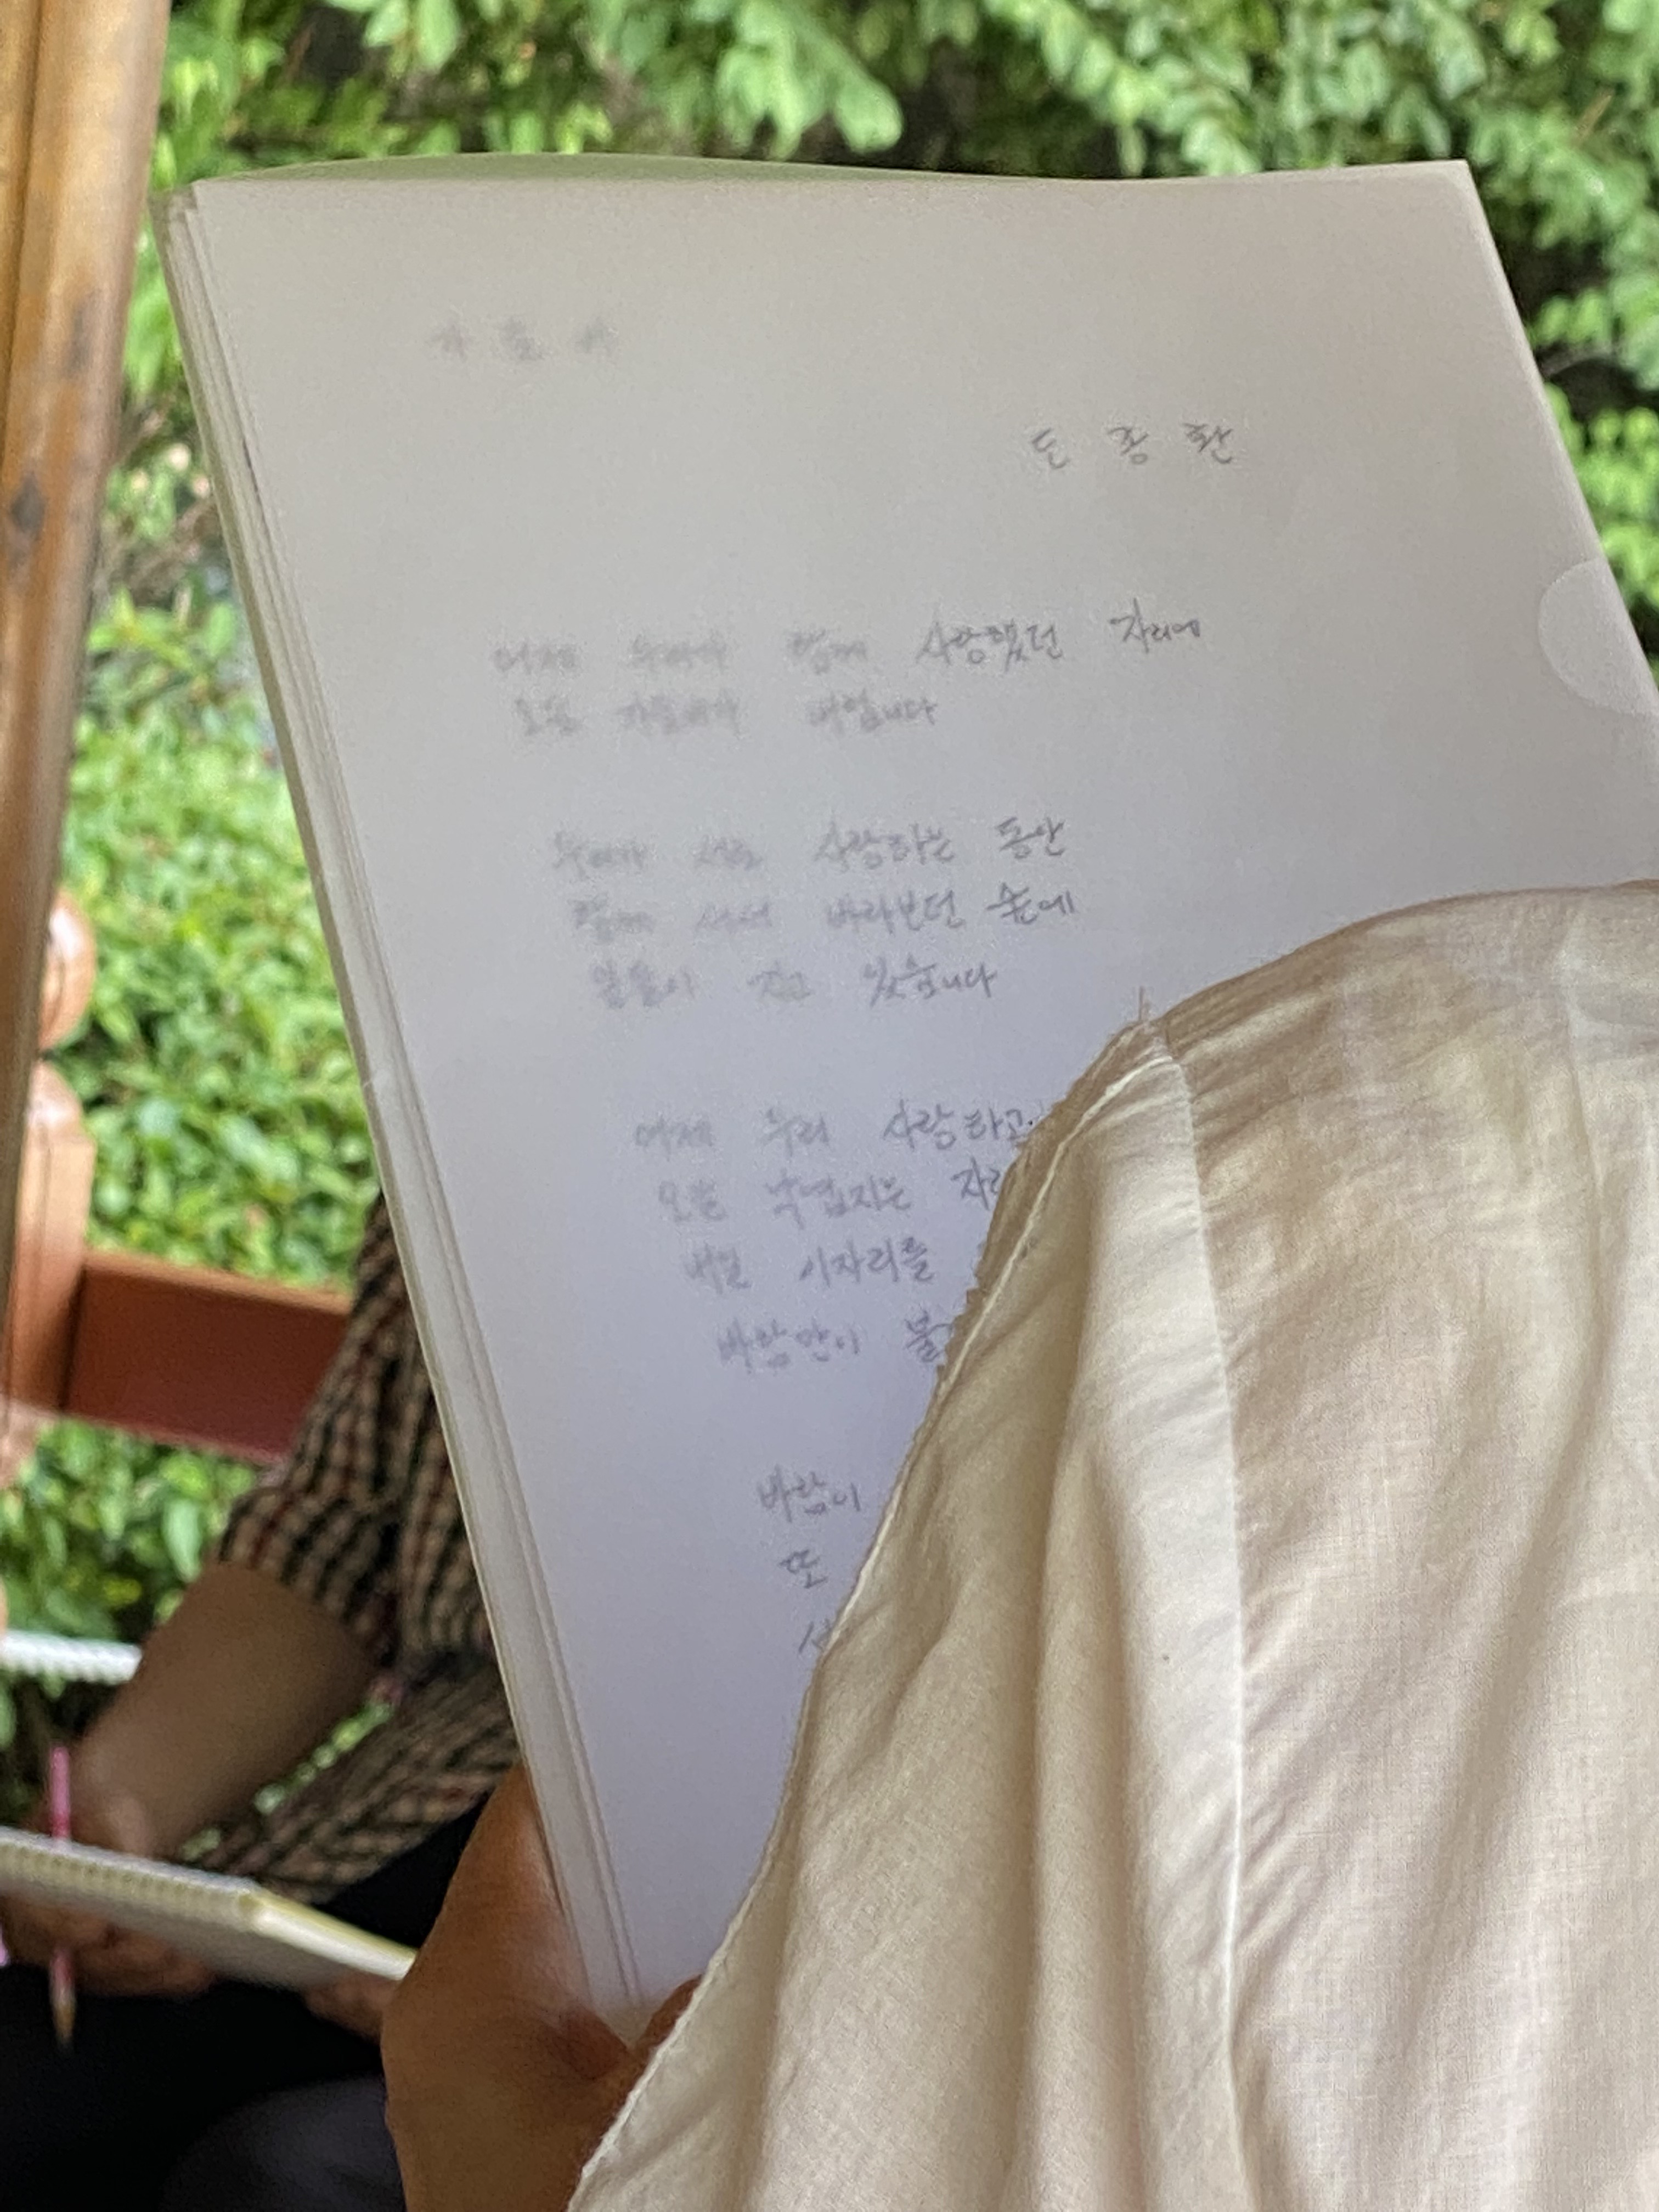 도 종 환
어제 우리가 함께 사랑했던 자리에
오늘 가을비가 내립니다
우리가 서로 사랑하는 동안
함께 서서 바라보던 숲에
잎들이 지고 있습니다
어제 우리 사랑하고
오늘 낙엽지는
내일 이자리를
바람만이
바람이
또